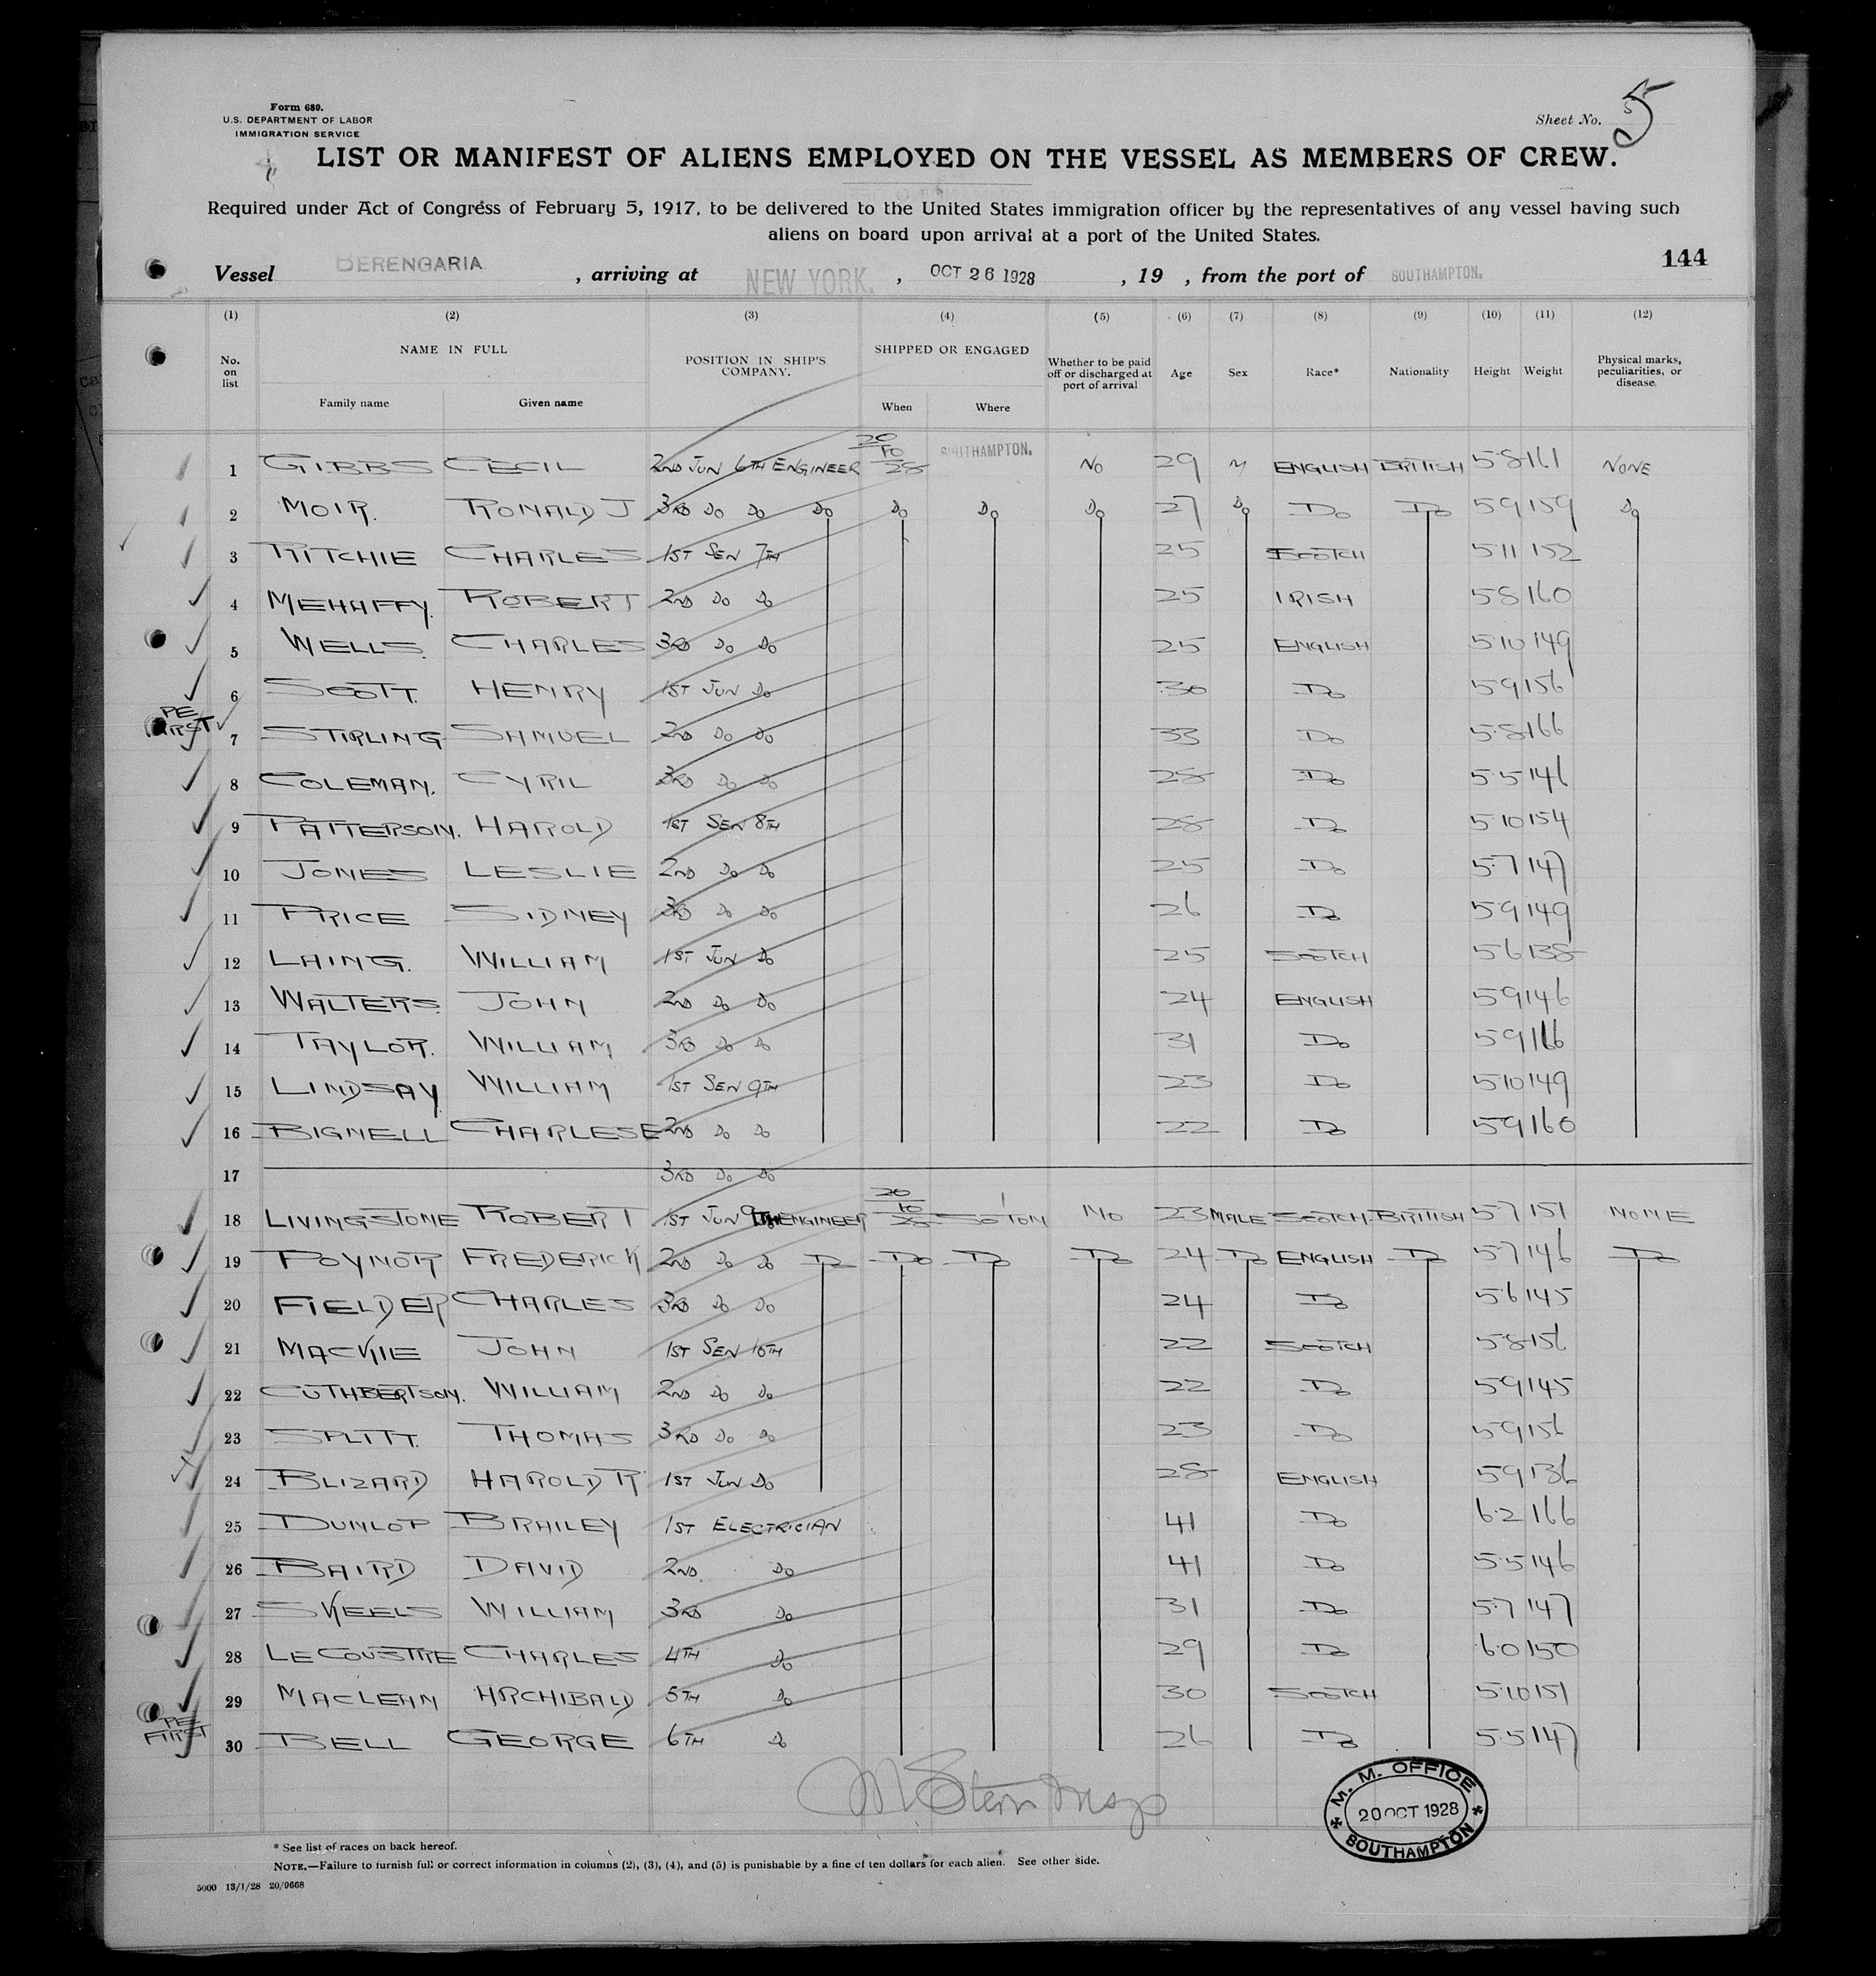 Form 680.
U.S. DEPARTMENT OF LABOR
IMMIGRATION SERVICE
Sheet No. 5
LIST OR MANIFEST OF ALIENS EMPLOYED ON THE VESSEL AS MEMBERS OF CREW.
Required under Act of Congress of February 5, 1917, to be delivered to the United States immigration officer by the representatives of any vessel having such
aliens on board upon arrival at a port of the United States.
144
Vessel BERENGARIA , arriving at NEW YORK. , OCT 26 1928 , 19 , from the port of SOUTHAMPTON.
(1) (2) (3) (4) (5) (6) (7) (8) (9) (10) (11) (12)
No. on list NAME IN FULL POSITION IN SHIP'S COMPANY. SHIPPED OR ENGAGED Whether to be paid off or discharged at port of arrival Age Sex Race* Nationality Height Weight Physical marks, peculiarities, or disease.
Family name Given name When Where
1 GIBBS CECIL 2ND JUN 6TH ENGINEER 20/10/28 SOUTHAMPTON. NO 29 M ENGLISH BRITISH 5·8 161 NONE
2 MOIR. RONALD J 3RD DO DO DO DO DO DO 27 DO DO DO 5·9 159 DO
3 RITCHIE CHARLES 1ST SEN 7TH 25 SCOTCH 5·11 152
4 MEHAFFY. ROBERT 2ND DO DO 25 IRISH 5·8 160
5 WELLS. CHARLES 3RD DO DO 25 ENGLISH 5·10 149
6 SCOTT. HENRY 1ST JUN DO 30 DO 5·9 156
PE FIRST
7 STIRLING SAMUEL 2ND DO DO 33 DO 5·8 166
8 COLEMAN. CYRIL 3RD DO DO 28 DO 5·5 146
9 PATTERSON. HAROLD 1ST SEN 8TH 28 DO 5·10 154
10 JONES LESLIE 2ND DO DO 25 DO 5·7 147
11 PRICE SIDNEY 3RD DO DO 26 DO 5·9 149
12 LAING. WILLIAM 1ST JUN DO 25 SCOTCH 5·6 138
13 WALTERS. JOHN 2ND DO DO 24 ENGLISH 5·9 146
14 TAYLOR. WILLIAM 3RD DO DO 31 DO 5·9 166
15 LINDSAY WILLIAM 1ST SEN 9TH 23 DO 5·10 149
16 BIGNELL CHARLES E 2ND DO DO 22 DO 5·9 160
17 3RD DO DO
18 LIVINGSTONE ROBERT 1ST JUN 9TH ENGINEER 20/10/28 SO'TON NO 23 MALE SCOTCH BRITISH 5·7 151 NONE
19 POYNOR FREDERICK 2ND DO DO DO DO DO DO 24 DO ENGLISH DO 5·7 146 DO
20 FIELDER CHARLES 3RD DO DO 24 DO 5·6 145
21 MACKIE JOHN 1ST SEN 10TH 22 SCOTCH 5·8 156
22 CUTHBERTSON. WILLIAM 2ND DO DO 22 DO 5·9 145
23 SPLITT. THOMAS 3RD DO DO 23 DO 5·9 156
24 BLIZARD HAROLD R 1ST JUN DO 28 ENGLISH 5·9 136
25 DUNLOP BRAILEY 1ST ELECTRICIAN 41 DO 6·2 166
26 BAIRD DAVID 2ND. DO 41 DO 5·5 146
27 SKEELS WILLIAM 3RD DO 31 DO 5·7 147
28 LE COUSTRE CHARLES 4TH DO 29 DO 6·0 150
29 MACLEAN ARCHIBALD 5TH DO 30 SCOTCH 5·10 151
PE FIRST
30 BELL GEORGE 6TH DO 26 DO 5·5 147
M. M. OFFICE
20 OCT 1928
SOUTHAMPTON
* See list of races on back hereof.
NOTE.—Failure to furnish full or correct information in columns (2), (3), (4), and (5) is punishable by a fine of ten dollars for each alien. See other side.
5000 13/1/28 20/9668